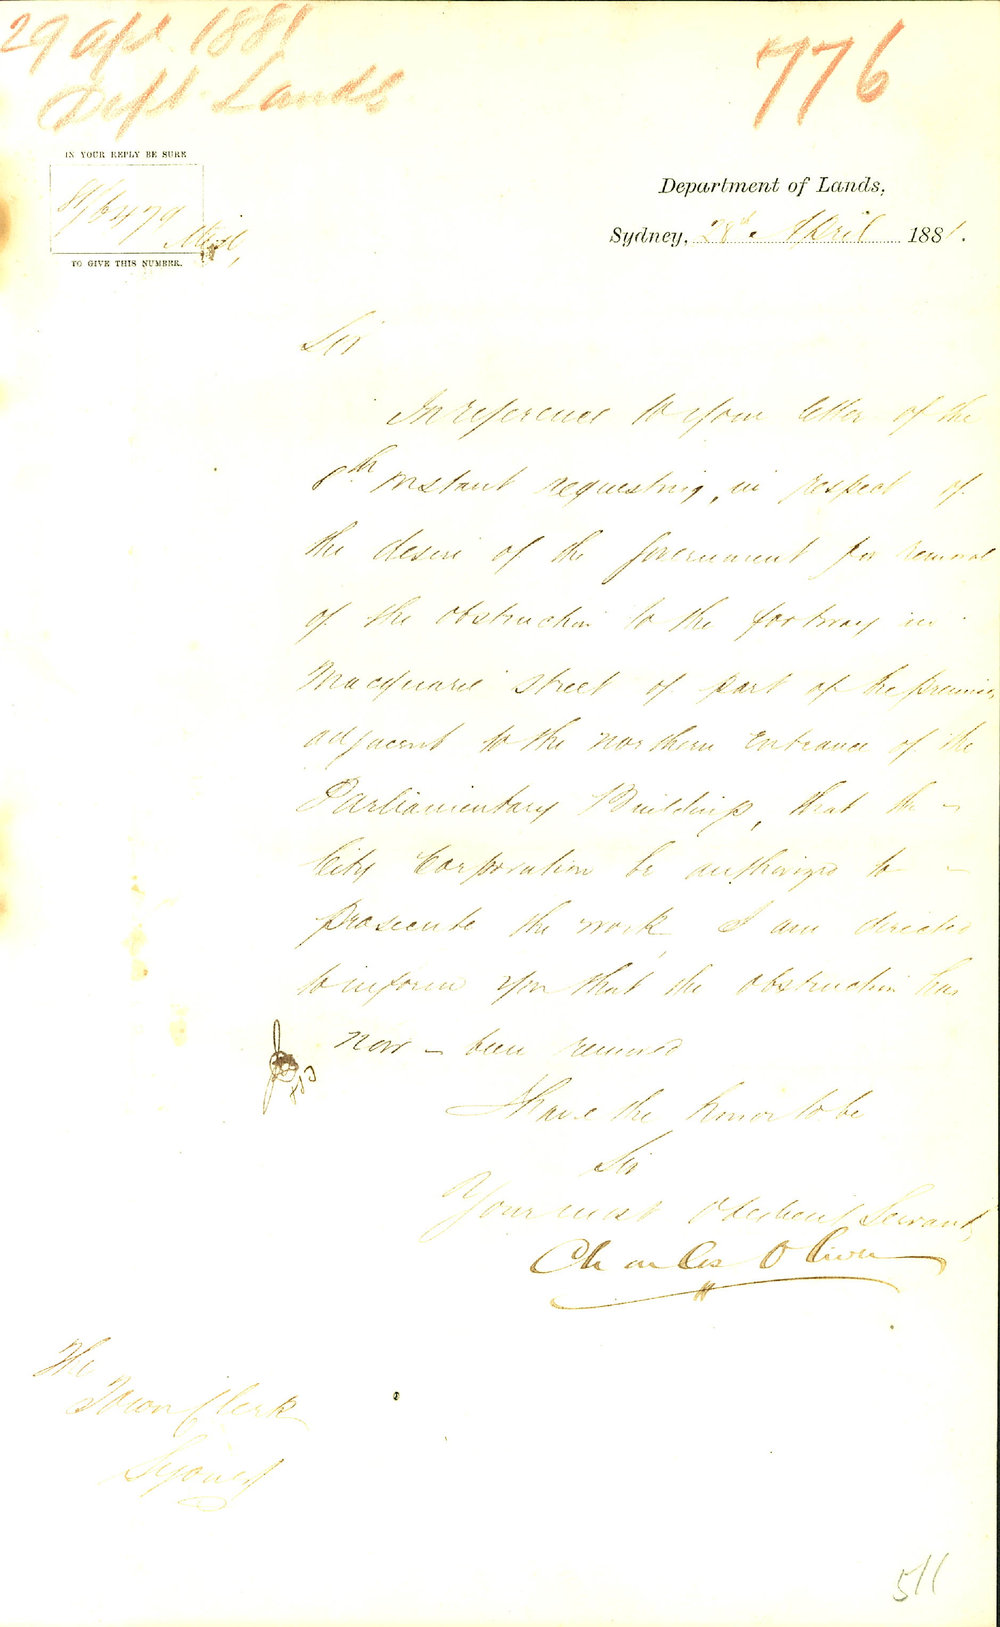 29 Apl 1881
Dept Lands
776
IN YOUR REPLY BE SURE
81/6479 Misc,
TO GIVE THIS NUMBER.
Department of Lands,
Sydney, 28th April 1881.
Sir
In reference to your letter of the
8th instant requesting, in respect of
the desire of the Government for removal
of the obstruction to the footway in
Macquarie Street of part of the premises
adjacent to the northern entrance of the
Parliamentary Buildings, that the
City Corporation be authorized to
prosecute the work, I am directed
to inform you that the obstruction has
now been removed
I have the honor to be
Sir
Your most obedient Servant,
Charles Oliver
The
Town Clerk
Sydney
511